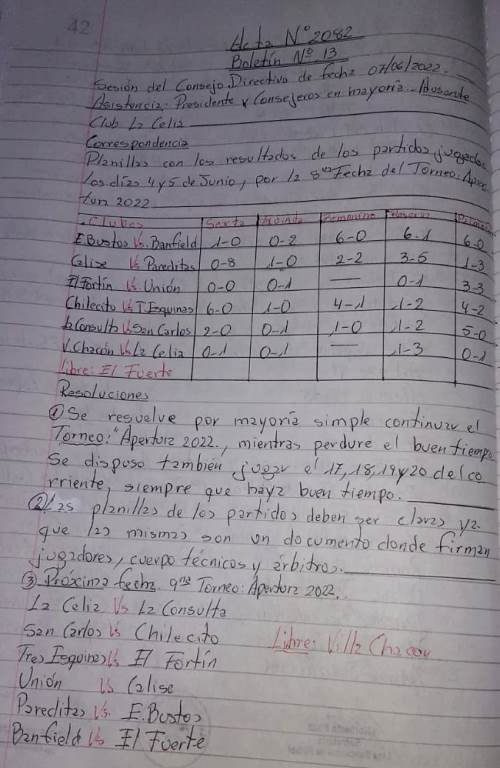 42
Acta N° 2082
Boletín N° 13
Sesión del Consejo Directivo de fecha 07/06/2022.
Asistencia: Presidente y Consejeros en mayoría. Ausente
Club La Celia
Correspondencia
Planillas con los resultados de los partidos jugados
los días 4 y 5 de Junio, por la 8va Fecha del Torneo: Aper
tura 2022
Clubes Sexta Quinta Primera
E. Bustos Vs. Banfield 1-0 0-2 6-0 6-1 6-0
Calise Vs Pareditas 0-8 1-0 2-2 3-5 1-3
El Fortín Vs Unión 0-0 0-1 — 0-1 3-3
Chilecito Vs T. Esquinas 6-0 1-0 4-1 1-2 4-2
La Consulta Vs San Carlos 2-0 0-1 1-0 1-2 5-0
V. Chacón Vs La Celia 0-1 0-1 — 1-3 0-1
Libre: El Fuerte
Resoluciones
① Se resuelve por mayoría simple continuar el
Torneo: "Apertura 2022., mientras perdure el buen tiempo
Se dispuso también jugar el 17, 18, 19 y 20 del co
rriente, siempre que haya buen tiempo.
② Las planillas de los partidos deben ser claras ya
que las mismas son un documento donde firman
jugadores, cuerpo técnicos y árbitros.
③ Próxima fecha 9na Torneo: Apertura 2022.
La Celia Vs La Consulta
San Carlos Vs Chilecito Libre: Villa Chacón
Tres Esquinas Vs El Fortín
Unión Vs Calise
Pareditas Vs. E. Bustos
Banfield Vs El Fuerte